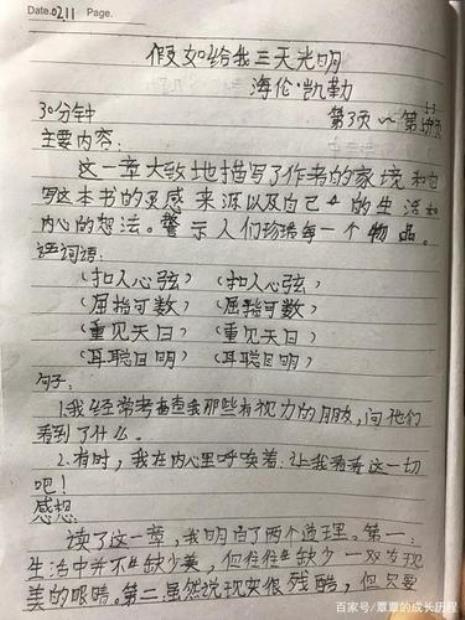 Date.0211 Page.
假如给我三天光明
海伦·凯勒
30分钟
第3页~第
主要内容:
这一章大致地描写了作者的家境和
写这本书的灵感来源以及自己的生活和
内心的想法。警示人们珍惜每一个物品。
词语:
(扣人心弦)(扣人心弦)
(屈指可数)(屈指可数)
(重见天日)(重见天日)
(耳聪目明)(耳聪目明)
句子:
1.我经常考查我那些有视力的朋友,问他们
看到了什么。
2.有时,我在内心里呼唤着:让我看看这一切
吧!
感想:
读了这一章,我明白了两个道理。第一:
生活中并不缺少美,但往往缺少一双发现
美的眼睛。第二:虽然说现实很残酷,但只要
百家号/覃覃的成长历程